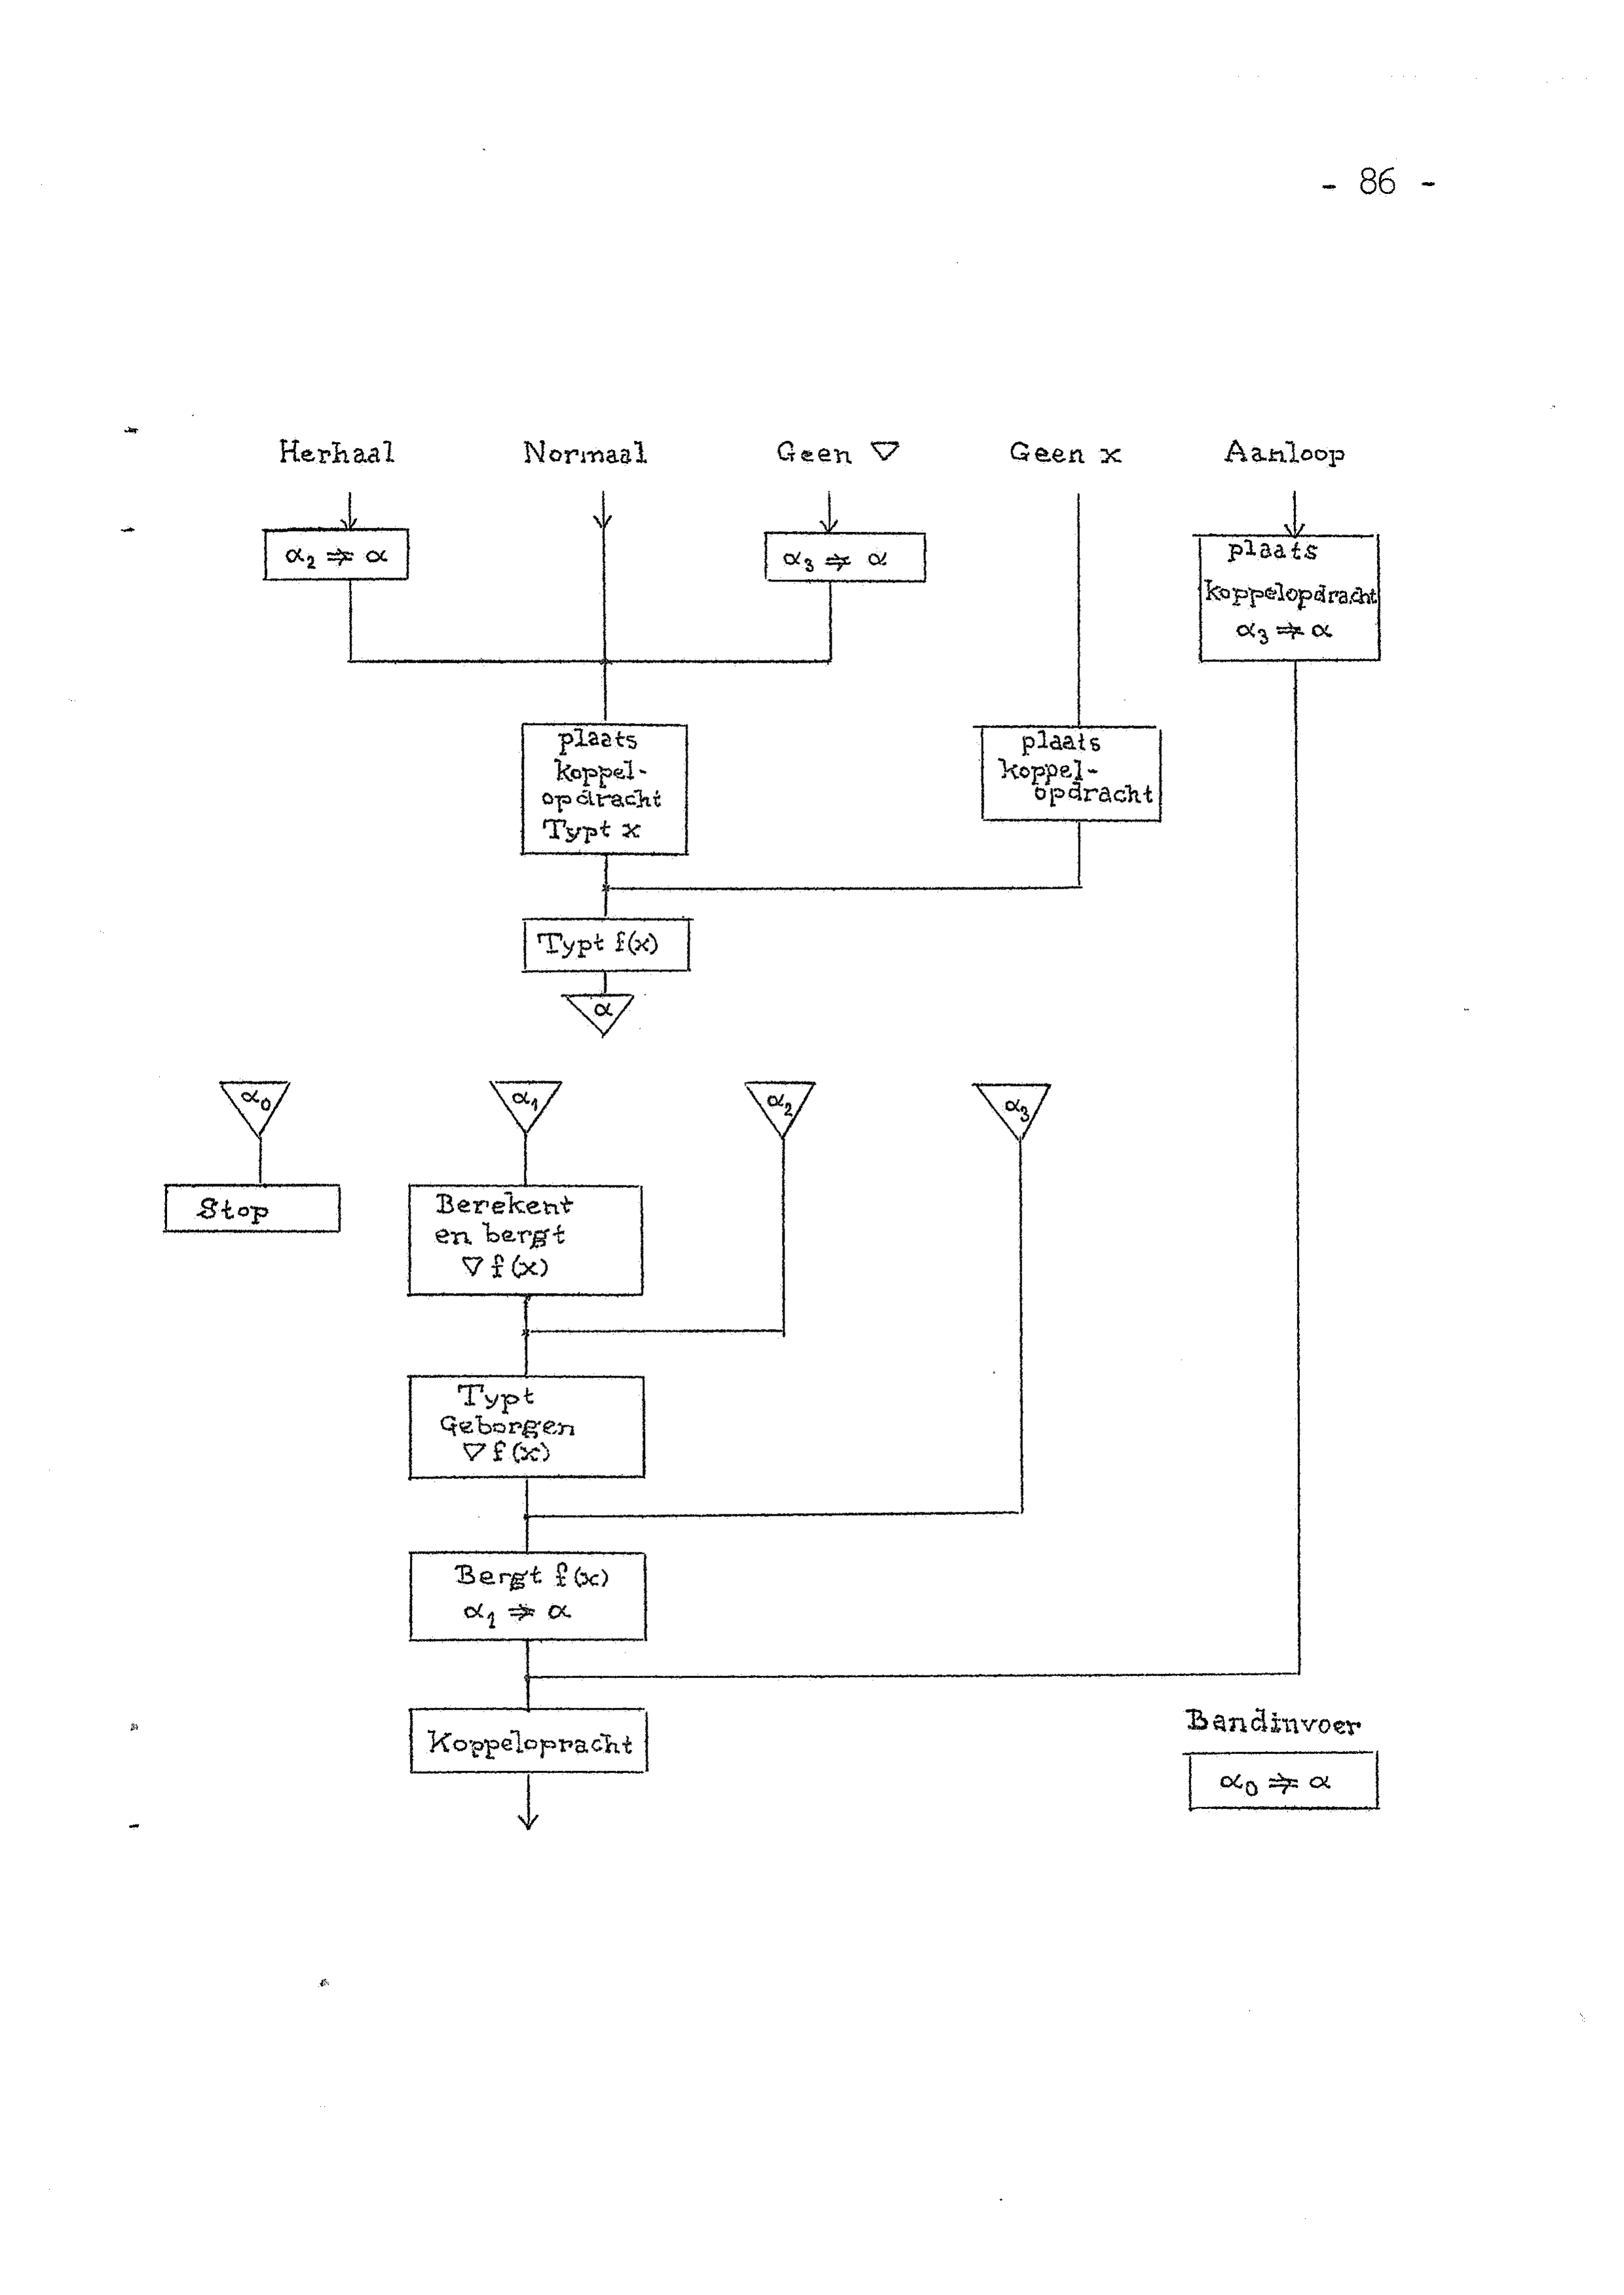 - 86 -
Herhaal
Normaal
Geen ▽
Geen x
Aanloop
α₂ ⇒ α
α₃ ⇒ α
plaats
koppelopdracht
α₃ ⇒ α
plaats
koppel-
opdracht
Typt x
plaats
koppel-
opdracht
Typt f(x)
α
α₀
α₁
α₂
α₃
Stop
Berekent
en bergt
▽ f(x)
Typt
Geborgen
▽ f(x)
Bergt f(x)
α₁ ⇒ α
Koppelopracht
Bandinvoer
α₀ ⇒ α